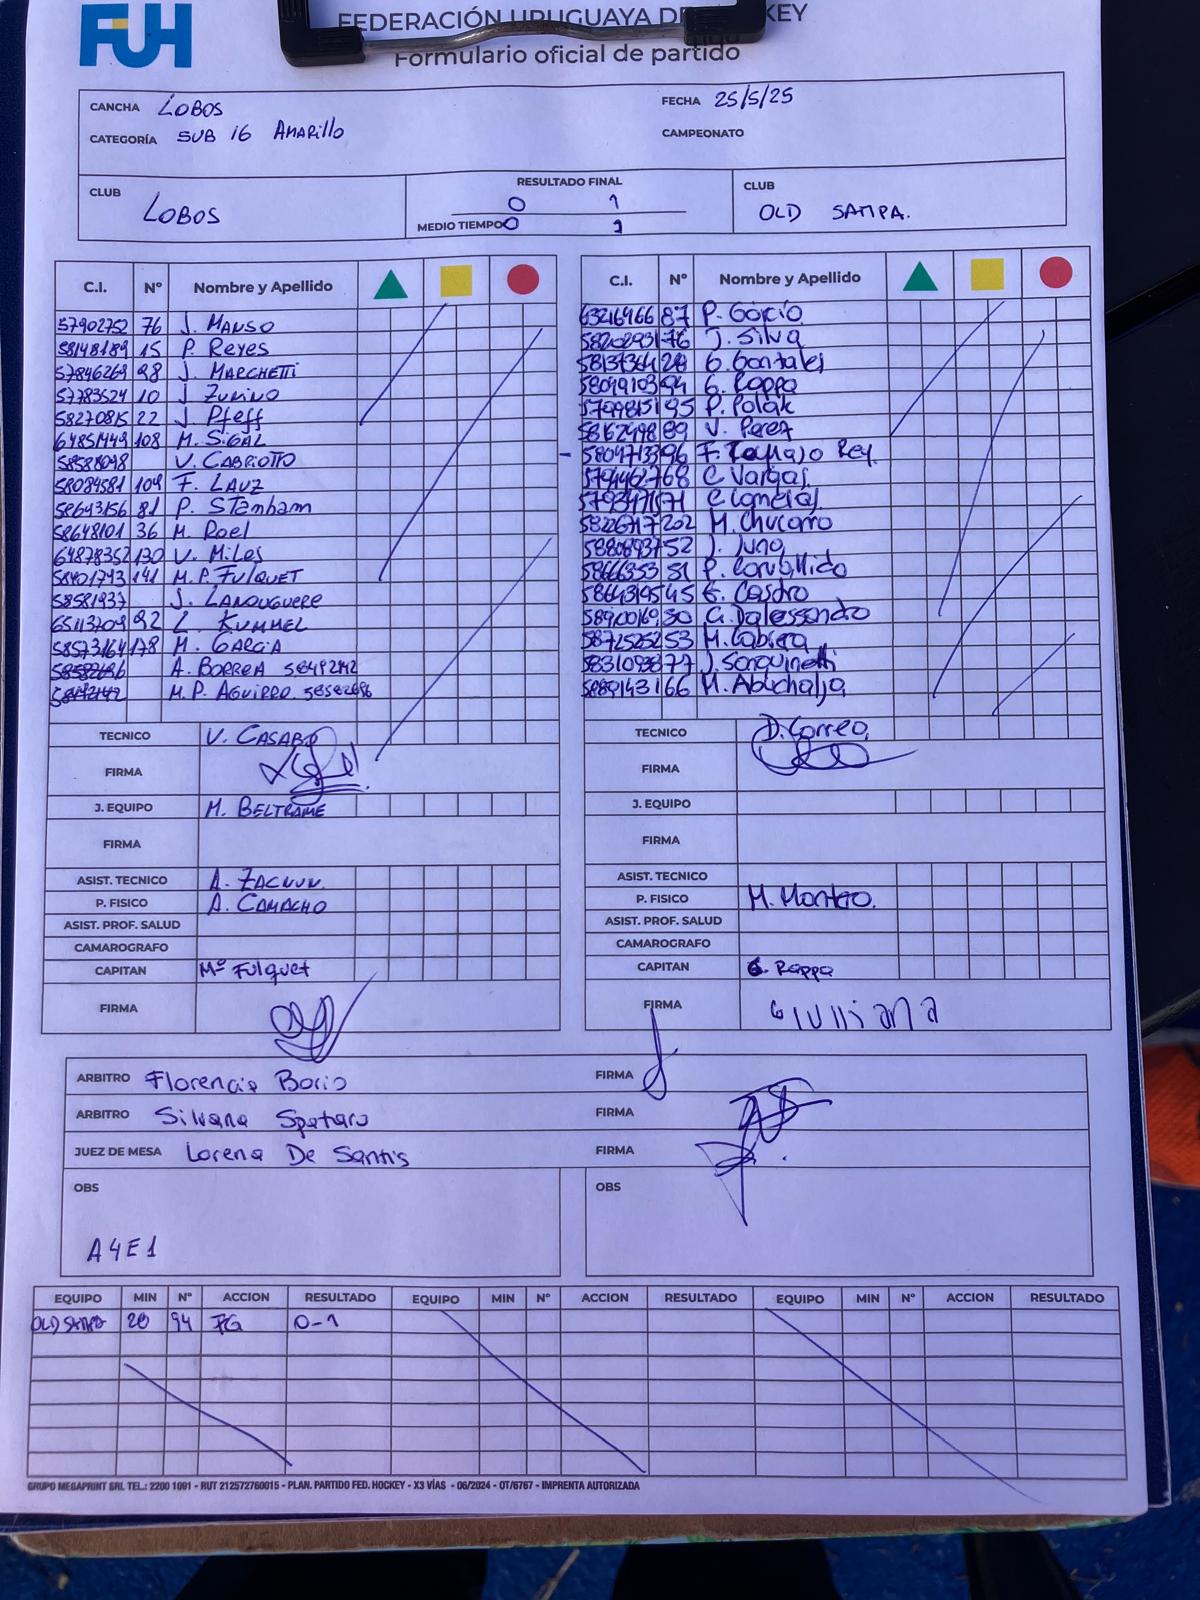 FUH
FEDERACIÓN URUGUAYA DE KEY
Formulario oficial de partido
CANCHA LOBOS
FECHA 25/5/25
CATEGORÍA SUB 16 AMARILLO
CAMPEONATO
CLUB LOBOS
RESULTADO FINAL 0 1
MEDIO TIEMPO 0 1
CLUB OLD SAMPA.
C.I. Nº Nombre y Apellido
57902752 76 J. MANSO
58148189 15 P. Reyes
57846269 98 J. MARCHETTI
57783524 10 J. ZUNINO
58270815 22 J. Pfeff
64851449 108 M. SIGAL
58588098 V. CABRIOTTO
58084581 109 F. LAUZ
58643156 81 P. STENHAM
58648101 36 M. Roel
64878352 130 V. MILES
58401743 141 M.P. FULQUET
58581937 J. LANOUGUERE
65113209 92 L. KUMMEL
58573164 178 M. GARCIA
A. BORREA 58492142
M.P. AGUIRRO 58582696
TECNICO V. CASABO
FIRMA
J. EQUIPO M. BELTRAME
FIRMA
ASIST. TECNICO A. ZACNUN.
P. FISICO A. CAMACHO
ASIST. PROF. SALUD
CAMAROGRAFO
CAPITAN Mª Fulquet
FIRMA
C.I. Nº Nombre y Apellido
63216966 87 P. García
58202931 76 J. Silva
58137364 28 G. Gonzales
58049103 94 G. Rappa
57998151 95 P. Polak
58162498 89 V. Perez
58047133 96 F. Rey.
57944627 68 C. Vargas.
57934711 71 C.
58226717 202 M. Chucarro
58808937 52 J. Juno
58666353 51 P. Carvallido
58643195 45 G. Castro
58900169 30 G. Dalessandro
58725252 53 M. Cabrera
58310938 77 J. Sanguinetti
58891431 66 M. Abuchalja
TECNICO D. Correo.
FIRMA
J. EQUIPO
FIRMA
ASIST. TECNICO
P. FISICO M. Montero.
ASIST. PROF. SALUD
CAMAROGRAFO
CAPITAN G. Rappa
FIRMA Giulliana
ARBITRO Florencia Borio FIRMA
ARBITRO Silvana Spataro FIRMA
JUEZ DE MESA Lorena De Santis FIRMA
OBS
A4E1
OBS
EQUIPO MIN Nº ACCION RESULTADO EQUIPO MIN Nº ACCION RESULTADO EQUIPO MIN Nº ACCION RESULTADO
OLD SAMPA 20 94 FG 0-1
GRUPO MEGAPRINT SRL TEL.: 2200 1091 - RUT 212572760015 - PLAN. PARTIDO FED. HOCKEY - X3 VÍAS - 06/2024 - OT/6767 - IMPRENTA AUTORIZADA